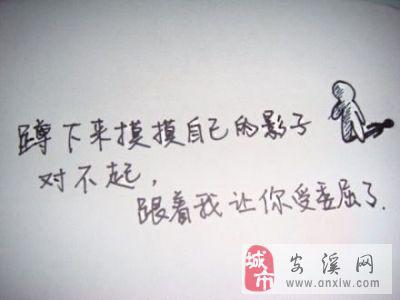 蹲下来摸摸自己的影子
对不起，
跟着我让你受委屈了.
城市 安溪网
www.onxiw.com